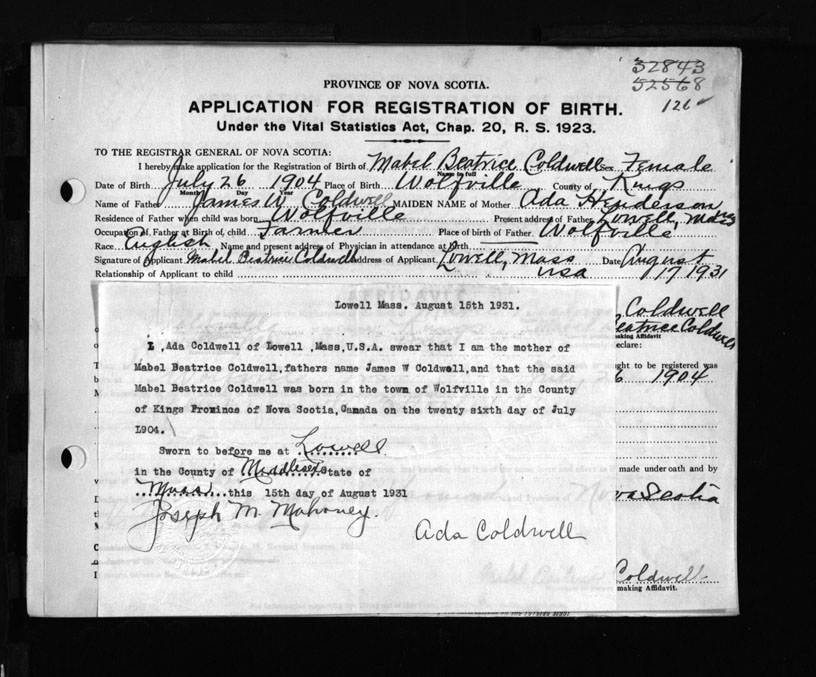 32843
52568
126
PROVINCE OF NOVA SCOTIA.
APPLICATION FOR REGISTRATION OF BIRTH.
Under the Vital Statistics Act, Chap. 20, R. S. 1923.
TO THE REGISTRAR GENERAL OF NOVA SCOTIA:
I hereby make application for the Registration of Birth of Mabel Beatrice Coldwell Sex Female
Name in full
Date of Birth July 26 1904 Place of Birth Wolfville County of Kings
Month Day Year
Name of Father James W Coldwell MAIDEN NAME of Mother Ada Henderson
Residence of Father when child was born Wolfville Present address of Father Lowell, Mass
Occupation of Father at Birth of child Farmer Place of birth of Father Wolfville
Race English Name and present address of Physician in attendance at Birth
Signature of Applicant Mabel Beatrice Coldwell Address of Applicant Lowell, Mass Date August
Relationship of Applicant to child usa 17 1931
Lowell Mass. August 15th 1931.
I ,Ada Coldwell of Lowell ,Mass,U.S.A. swear that I am the mother of
Mabel Beatrice Coldwell,fathers name James W Coldwell,and that the said
Mabel Beatrice Coldwell was born in the town of Wolfville in the County
of Kings Province of Nova Scotia,Canada on the twenty sixth day of July
1904.
Sworn to before me at Lowell
in the County of Middlesex State of
Mass this 15th day of August 1931
Joseph M. Mahoney.
Ada Coldwell
Coldwell
Beatrice Coldwell
making Affidavit
eclare:
ght to be registered was
6 1904
made under oath and by
va Scotia
Coldwell
making Affidavit.